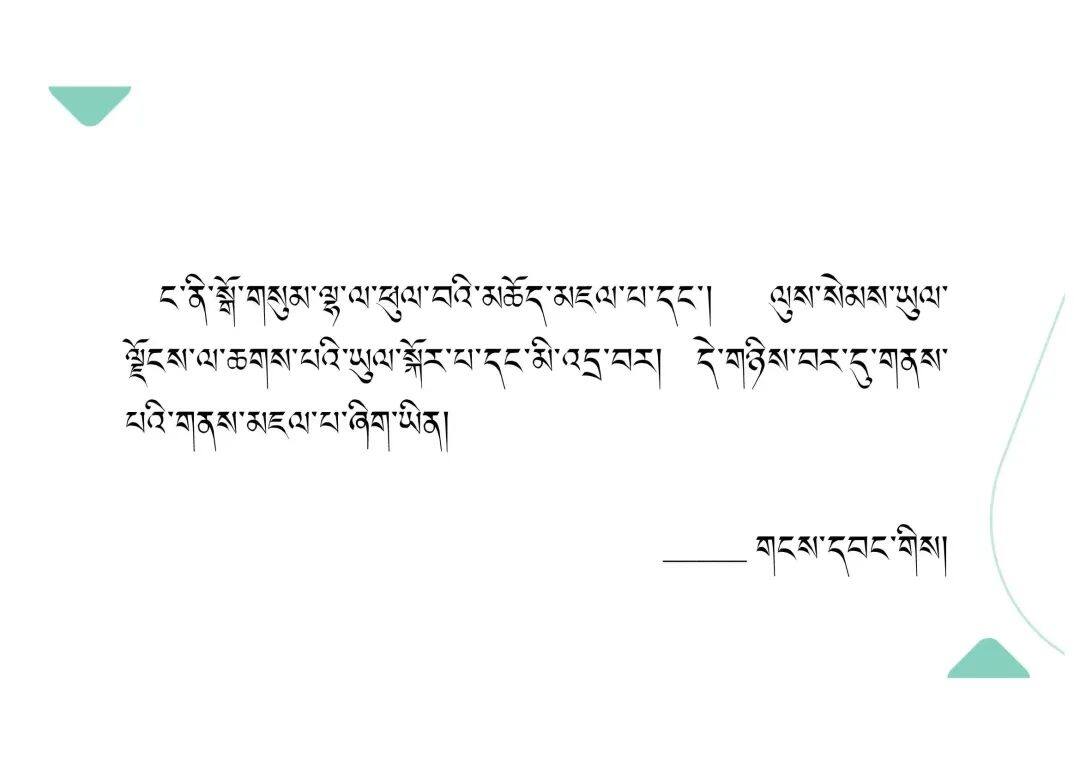 ང་ནི་སྒོ་གསུམ་ལྷ་ལ་ཕུལ་བའི་མཆོད་མཇལ་པ་དང་། ལུས་སེམས་ཡུལ་
ལྗོངས་ལ་ཆགས་པའི་ཡུལ་སྐོར་པ་དང་མི་འདྲ་བར། དེ་གཉིས་བར་དུ་གནས་
པའི་གནས་མཇལ་པ་ཞིག་ཡིན།
_____ གངས་དབང་གིས།